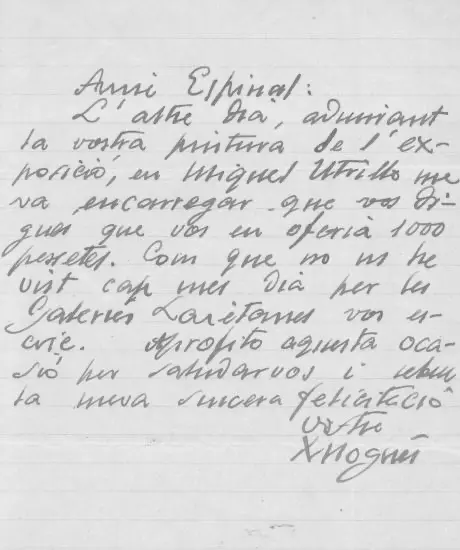 Amic Espinal:
L'altre dia, admirant
la vostra pintura de l'ex-
posició, en Miquel Utrillo me
va encarregar que vos di-
gues que vos en oferia 1000
pessetes. Com que no us he
vist cap mes dia per les
Galeries Laietanes vos es-
cric. Aprofito aquesta oca-
sió per saludarvos i rebeu
la meva sincera felicitació
vostre
XNogués